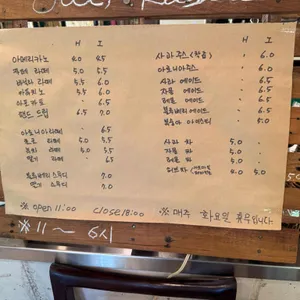 H I
아메리카노 4.0 4.5
카페 라떼 5.0 5.5
바닐라 라떼 5.5 6.0
카푸치노 5.5 6.0
아포카토 · 6.5
핸드 드립 6.5 7.0
아로니아라떼 · 6.5
초코 라떼 5.0 5.5
라떼 5.0 5.5
딸기 라떼 · 6.5
블루베리 스무디 7.0
딸기 스무디 7.0
H I
사과 주스 (착즙) · 6.0
아로니아주스 · 6.0
사과 에이드 · 6.0
자몽 에이드 · 6.0
레몬 에이드 · 6.0
블루베리에이드 · 6.0
복숭아 아이스티 · 5.0
사과 차 5.0
자몽 차 5.0
레몬 차 5.0
허브차 4.0 5.0
※ open 11:00 CLOSE 18:00 ※ 매주 화요일 휴무입니다.
※ 11 ~ 6시